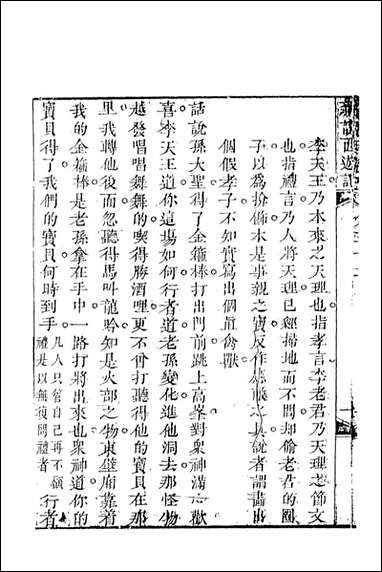 新說西遊記
李天王乃本來之天理也指孝言李老君乃天理之節文
也指禮言乃人將天理已經掃地而不問却偷老君的圈
子以爲扮
木是事親之寶反作
具說者謂畵出
個假孝子不知實寫出個眞禽獸
話說孫大聖得了金箍棒打出門前跳上高峯對衆神滿心歡
喜李天王道你這塲如何行者道老孫變化進他洞去那怪物
越發唱唱舞舞的喫得勝酒哩更不曾打聽得他的寶貝在那
里我轉他後面忽聽得馬叫龍吟知是火部之物東壁廂靠着
我的金箍棒是老孫拿在手中一路打將出來也衆神道你的
寶貝得了我們的寶貝何時到手
凡人只管自己再不顧
禮是以無復問禮者
行者